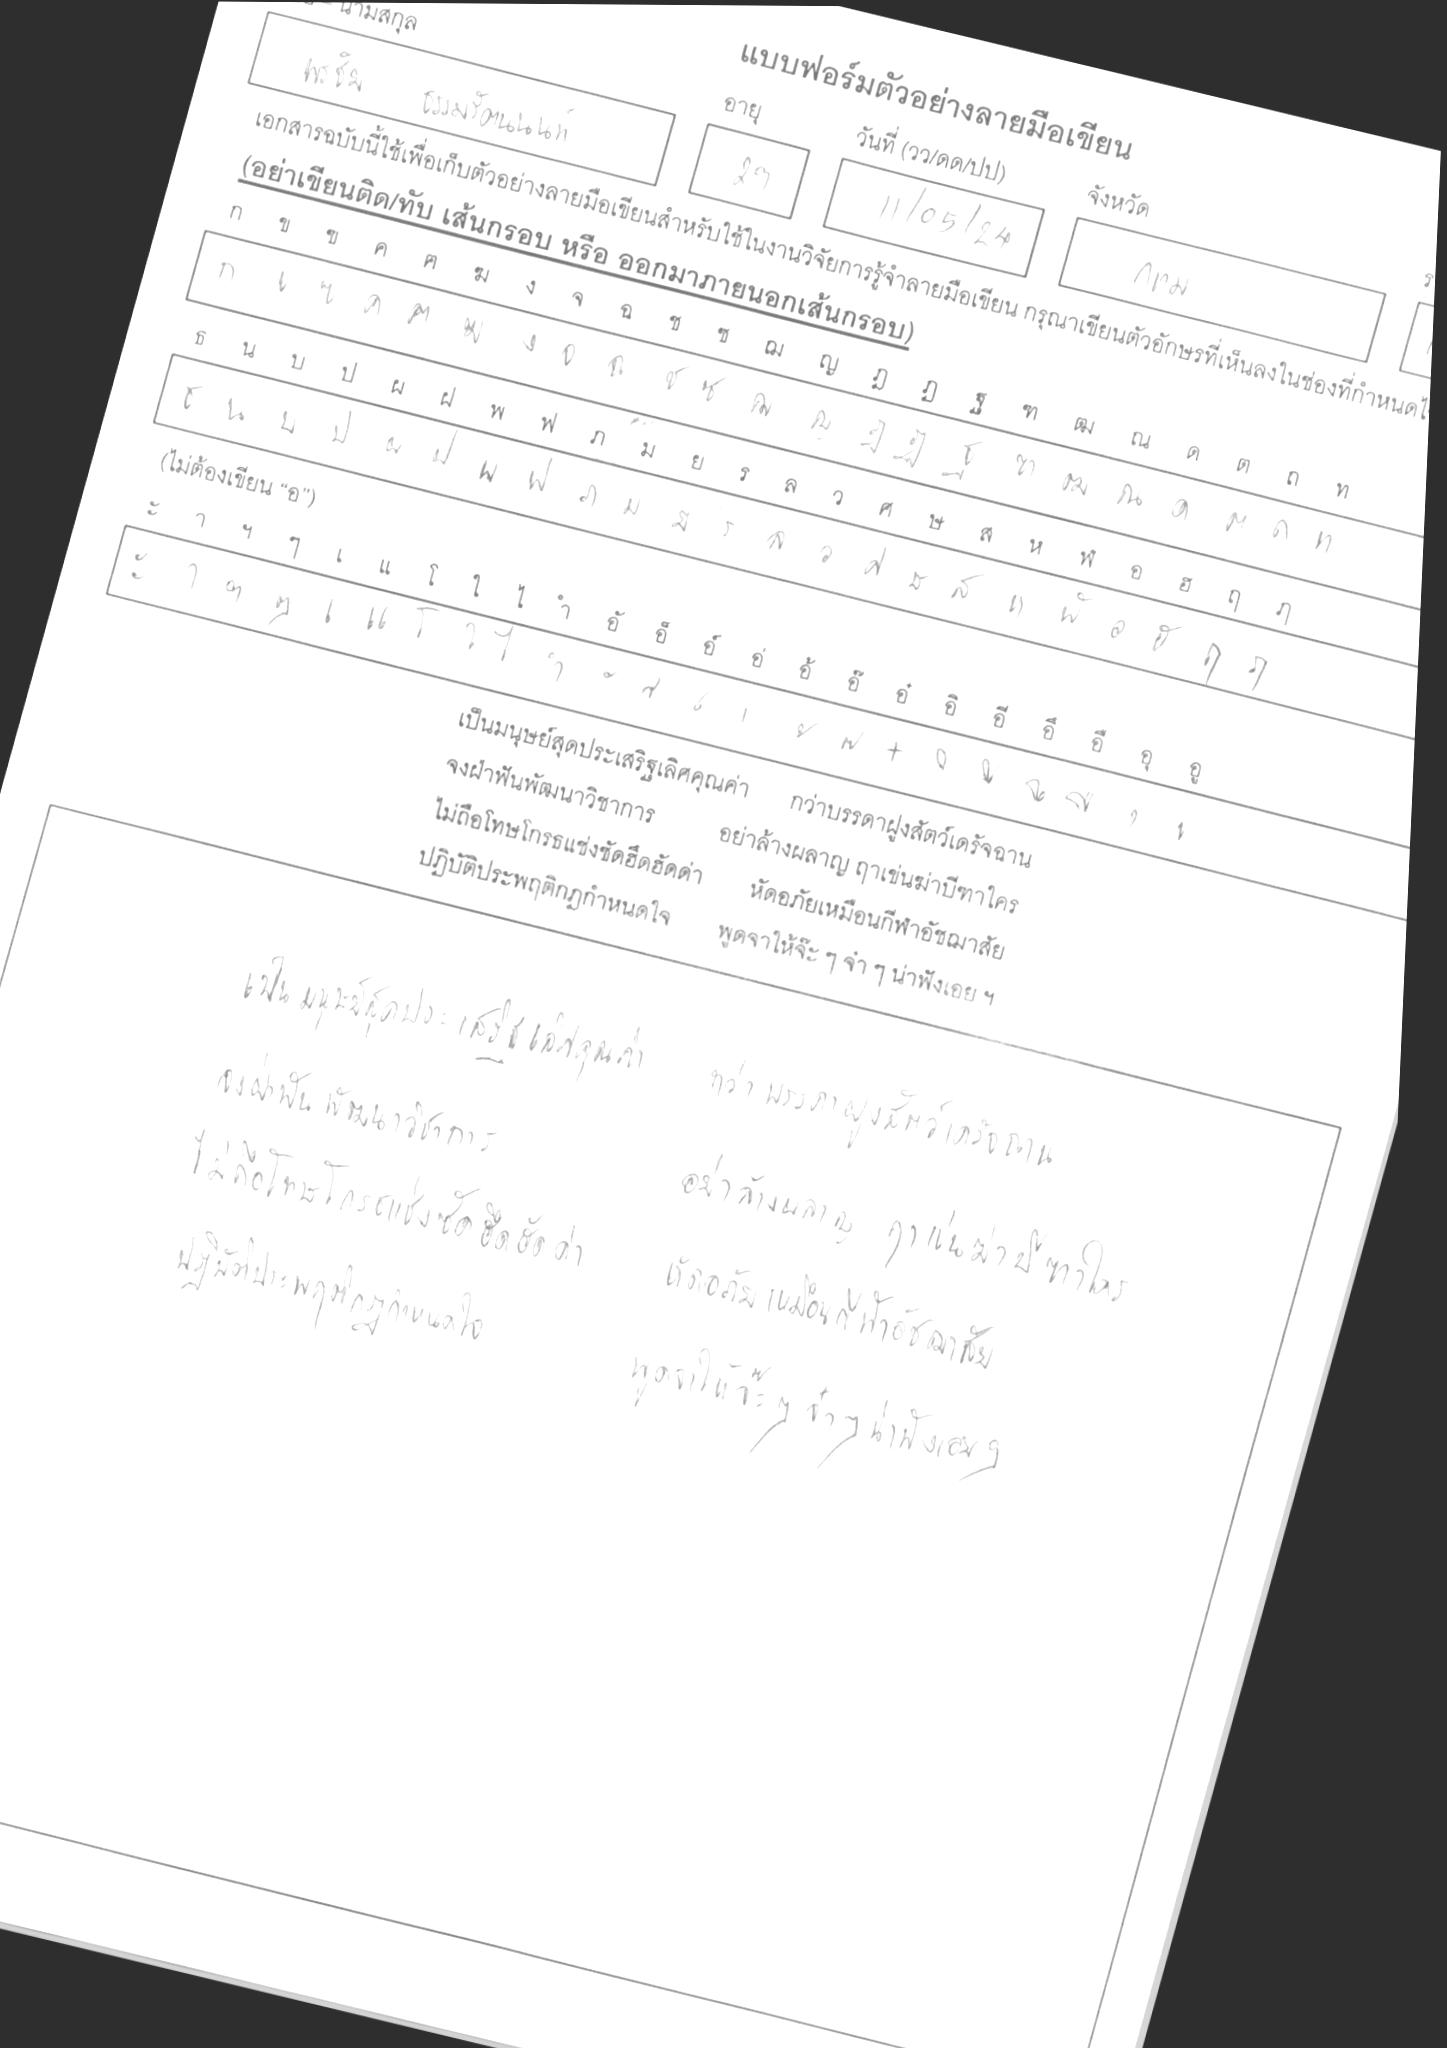 แบบฟอร์มตัวอย่างลายมือเขียน
นามสกุล
อายุ
วันที่ (วว/ดด/ปป)
จังหวัด
11/05/24
กทม
เอกสารฉบับนี้ใช้เพื่อเก็บตัวอย่างลายมือเขียนสำหรับใช้ในงานวิจัยการรู้จำลายมือเขียน กรุณาเขียนตัวอักษรที่เห็นลงในช่องที่กำหนด
(อย่าเขียนติด/ทับ เส้นกรอบ หรือ ออกมาภายนอกเส้นกรอบ)
ก ข ฃ ค ฅ ฆ ง จ ฉ ช ซ ฌ ญ ฎ ฏ ฐ ฑ ฒ ณ ด ต ถ ท
ก ข ฃ ค ฅ ฆ ง จ ฉ ช ซ ฌ ญ ฎ ฏ ฐ ฑ ฒ ณ ด ต ถ ท
ธ น บ ป ผ ฝ พ ฟ ภ ม ย ร ล ว ศ ษ ส ห ฬ อ ฮ ฤ ฦ
ธ น บ ป ผ ฝ พ ฟ ภ ม ย ร ล ว ศ ษ ส ห ฬ อ ฮ ฤ ฦ
(ไม่ต้องเขียน “อ”)
ะ า ฯ ๆ เ แ โ ใ ไ ำ อั อ็ อ์ อ่ อ้ อ๊ อ๋ อิ อี อึ อื อุ อู
ะ า ฯ ๆ เ แ โ ใ ไ ำ ั ็ ์ ่ ้ ๊ ๋ ิ ี ึ ื ุ ู
เป็นมนุษย์สุดประเสริฐเลิศคุณค่า กว่าบรรดาฝูงสัตว์เดรัจฉาน
จงฝ่าฟันพัฒนาวิชาการ อย่าล้างผลาญ ฤาเข่นฆ่าบีฑาใคร
ไม่ถือโทษโกรธแช่งซัดฮึดฮัดด่า หัดอภัยเหมือนกีฬาอัชฌาสัย
ปฏิบัติประพฤติกฎกำหนดใจ พูดจาให้จ๊ะ ๆ จ๋า ๆ น่าฟังเอย ฯ
เป็นมนุษย์สุดประเสริฐเลิศคุณค่า กว่าบรรดาฝูงสัตว์เดรัจฉาน
จงฝ่าฟันพัฒนาวิชาการ อย่าล้างผลาญ ฤาเข่นฆ่าบีฑาใคร
ไม่ถือโทษโกรธแช่งซัดฮึดฮัดด่า หัดอภัยเหมือนกีฬาอัชฌาสัย
ปฏิบัติประพฤติกฎกำหนดใจ พูดจาให้จ๊ะ ๆ จ๋า ๆ น่าฟังเอย ฯ